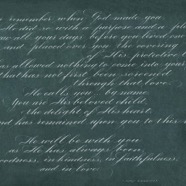 remember when God made you
He did so with a purpose and a pl
your days before you lived one
and placed over you the covering
His protective
as allowed nothing to come into your
that has not first been screened
through that love.
He calls you by name.
You are His beloved child,
the delight of His heart,
and has remained upon you to this
He will be with you
as He has always been
in kindness, in faithfulness,
and in love.